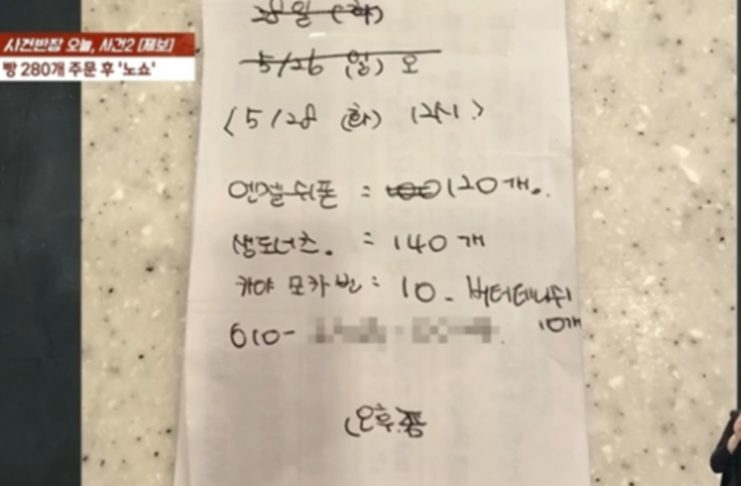 사건반장 오늘, 사건2 [제보]
빵 280개 주문 후 '노쇼'
28일 (화)
5/26 (일) 오
<5/28 (화) 12시>
엔젤쉬폰 = 100 120개.
생도너츠. = 140개
카야 모카번 = 10 - 버터데니쉬
10개
010-
(오후쯤